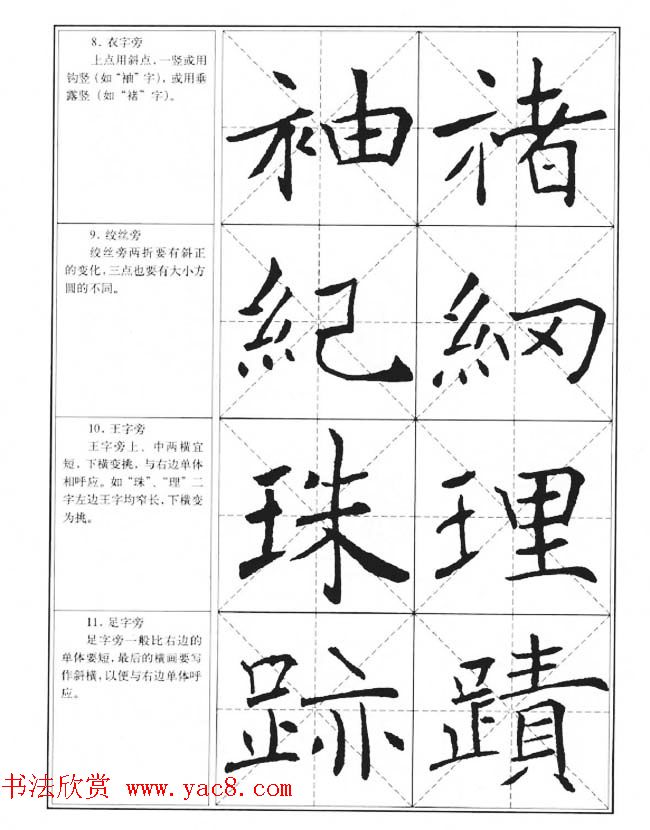 8. 衣字旁
上点用斜点,一竖或用
钩竖(如“袖”字),或用垂
露竖(如“褚”字)。
袖 褚
9. 绞丝旁
绞丝旁两折要有斜正
的变化,三点也要有大小方
圆的不同。
紀 紉
10. 王字旁
王字旁上、中两横宜
短,下横变挑,与右边单体
相呼应。如“珠”、“理”二
字左边王字均窄长,下横变
为挑。
珠 理
11. 足字旁
足字旁一般比右边的
单体要短,最后的横画要写
作斜横,以便与右边单体呼
应。
跡 蹟
书法欣赏 www.yac8.com